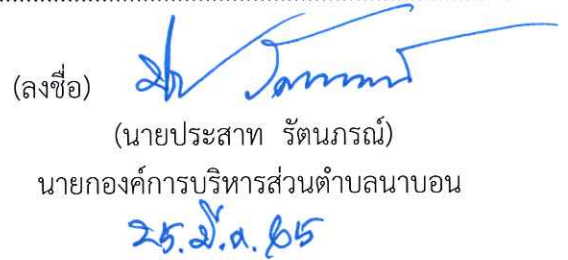 (ลงชื่อ)
(นายประสาท รัตนภรณ์)
นายกองค์การบริหารส่วนตำบลนาบอน
25. มี.ค. 65